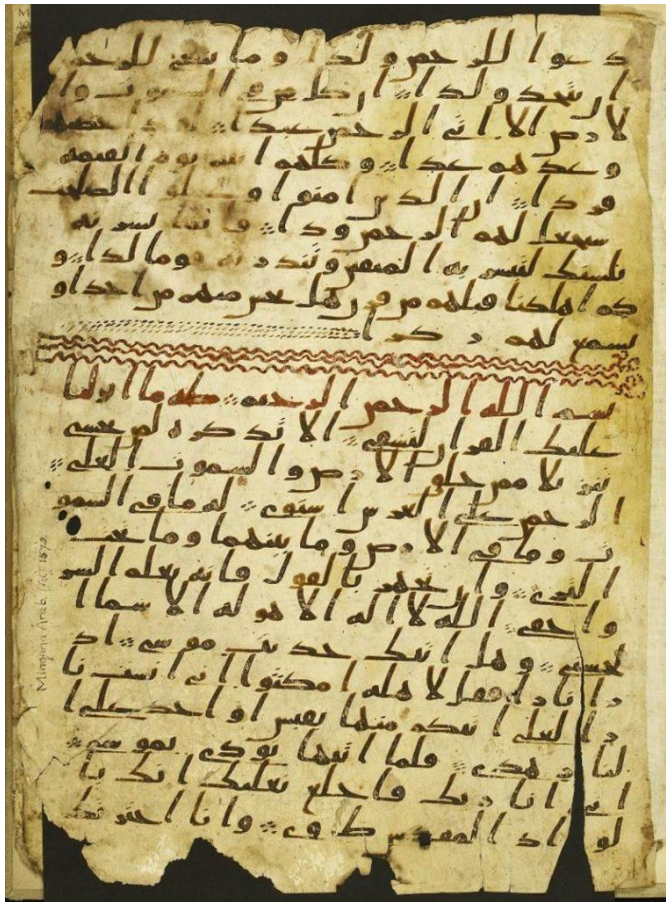 دعوا للرحمن ولدا وما ينبغي للرحمن
ان يتخذ ولدا ان كل من في السموت وا
لارض الا اتي الرحمن عبدا لقد احصهم
وعدهم عدا وكلهم اتيه يوم القيمه
فردا ان الذين امنوا وعملوا الصلحت
سيجعل لهم الرحمن ودا فانما يسرنه
بلسنك لتبشر به المتقين وتنذر به قوما لدا و
كم اهلكنا قبلهم من قرن هل تحس منهم من احد او
تسمع لهم ركزا
بسم الله الرحمن الرحيم طه ما انزلنا
عليك القران لتشقى الا تذكره لمن يخشى
تنزيلا ممن خلق الارض والسموت العلى
الرحمن على العرش استوى له ما في السمو
ت وما في الارض وما بينهما وما تحت
الثرى وان تجهر بالقول فانه يعلم السر
واخفى الله لا اله الا هو له الاسما ا
لحسنى وهل اتيك حديث موسى اذ
را نارا فقل لاهله امكثوا اني انست نا
را لعلي اتيكم منها بقبس او اجد على ا
لنار هدى فلما اتيها نودي يموسى
اني انا ربك فاخلع نعليك انك با
لواد المقدس طوى وانا اخترتك
Mingana Arab. 1572